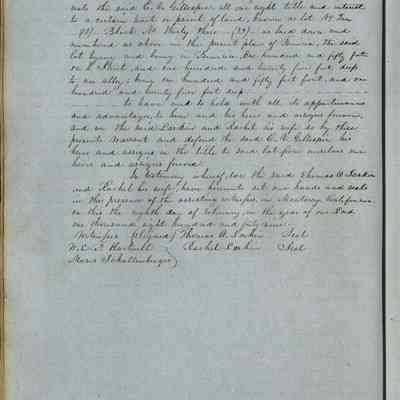 unto the said C. C. Gillespie all our right title and interest
to a certain part or parcel of land, known as lot No Ten
(10) Block No thirty three (33) as laid down and
numbered as above in the present plan of Benicia, the said
lot lying and being in Benicia, One hundred and fifty feet
on street, and one hundred and twenty five feet deep
to an alley, being one hundred and fifty feet front, and one
hundred and twenty five feet deep
To have and to hold with all its appurtenances
and advantages, to him and his heirs and assigns forever,
and we the said Larkin and Rachel his wife do by these
presents warrant and defend the said C. C. Gillespie his
heirs and assigns in the title to said lot from ourselves our
heirs and assigns forever
In testimony whereof, we the said Thomas O. Larkin
and Rachel his wife, have hereunto set our hands and seals
in the presence of the assisting witnesses, in Monterey California
on this the eighth day of February, in the year of our Lord
one thousand eight hundred and forty nine.
Witnesses (Signed) Thomas O. Larkin Seal
W. E. P. Hartnell Rachel Larkin Seal
Moses Schallenberger